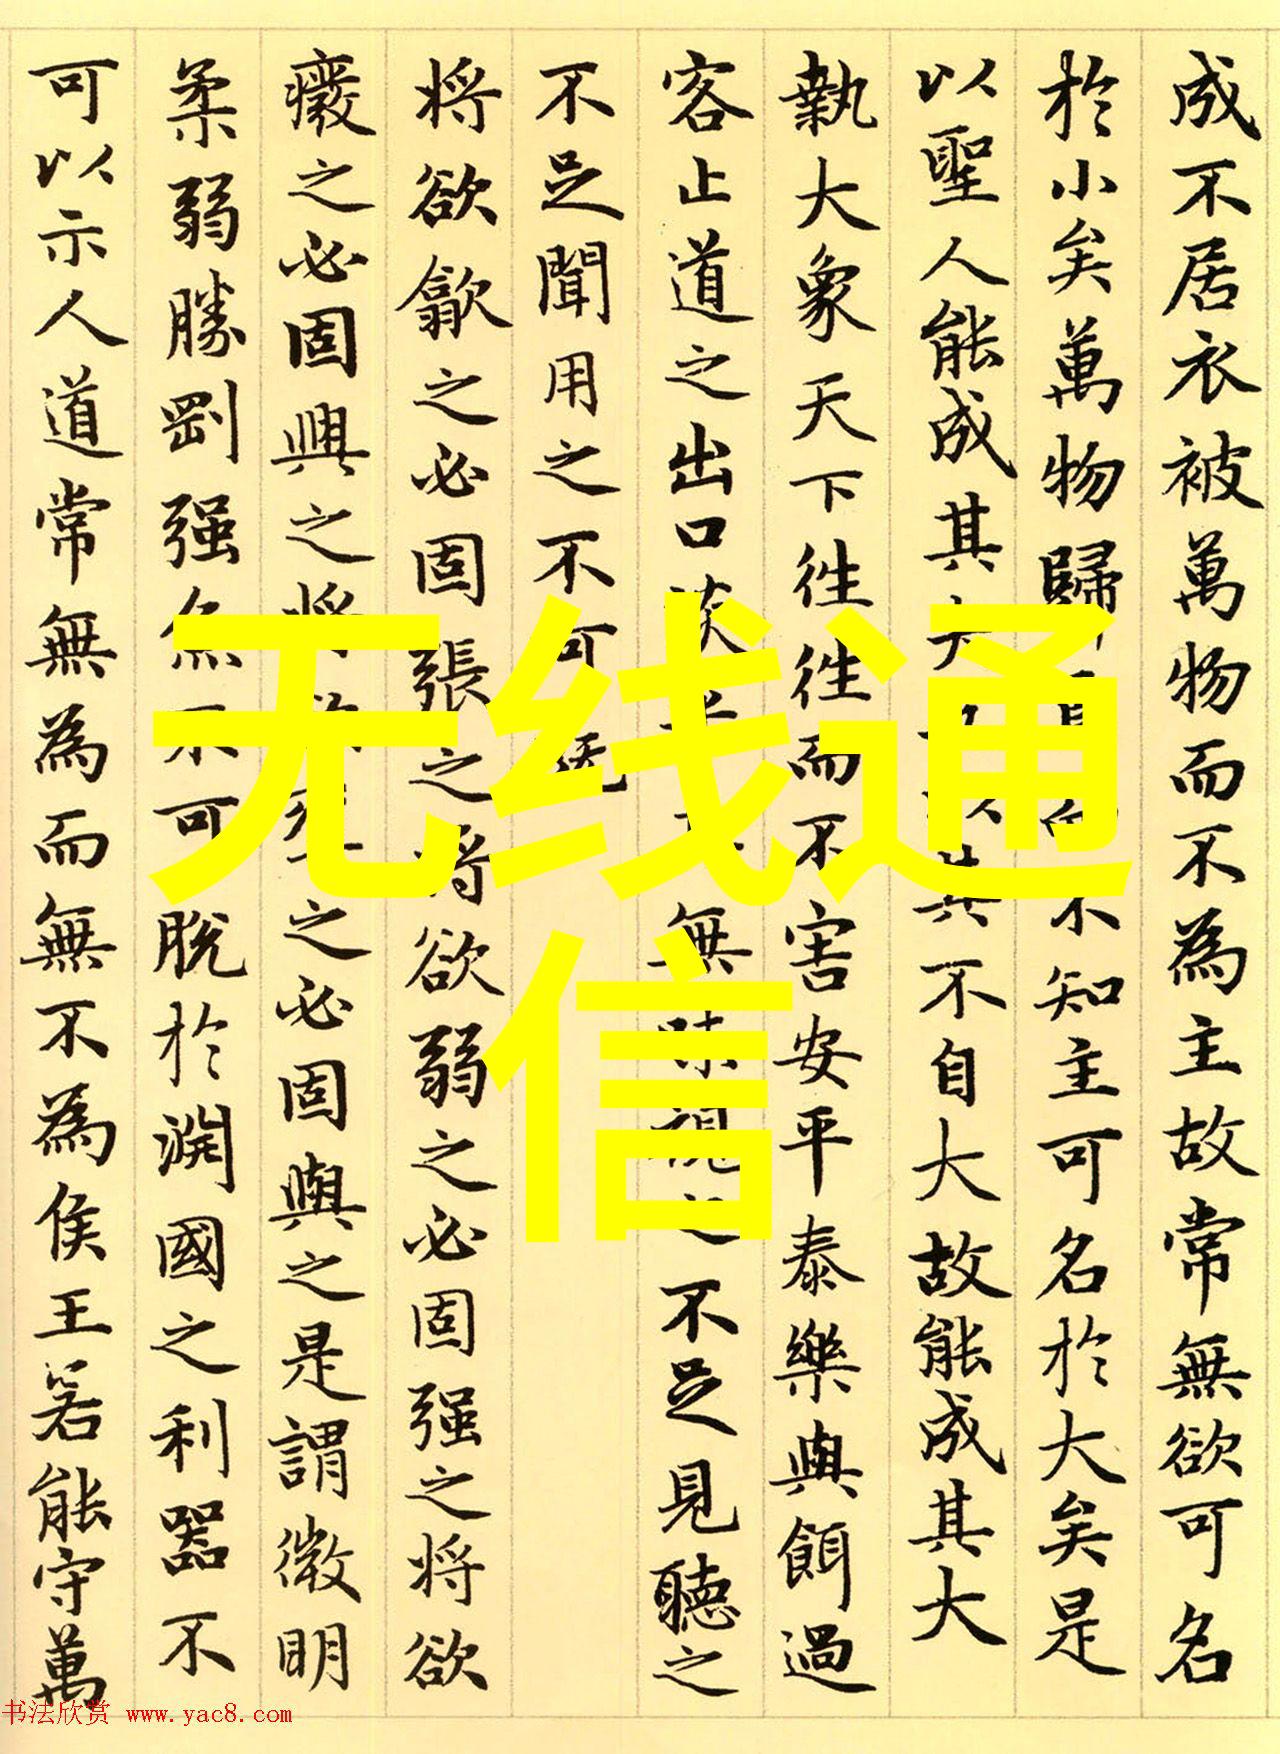 成不居衣被萬物而不為主故常無欲可名
於小矣萬物歸不知主可名於大矣是
以聖人能成其不自大故能成其大
執大象天下徃徃而不害安平泰樂與餌過
客止道之出口淡無味視之不足見聽之
不足聞用之不可既
将欲歙之必固張之将欲弱之必固强之将欲
癈之必固興之将之必固與之是謂微明
柔弱勝剛强魚不可脫於淵國之利器不
可以示人道常無為而無不為侯王若能守萬
无线通
信
书法欣赏 www.yac8.com